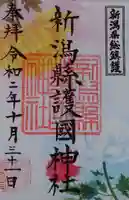 新潟縣総鎮護
新潟縣護國神社
奉拝 令和二年十月三十一日